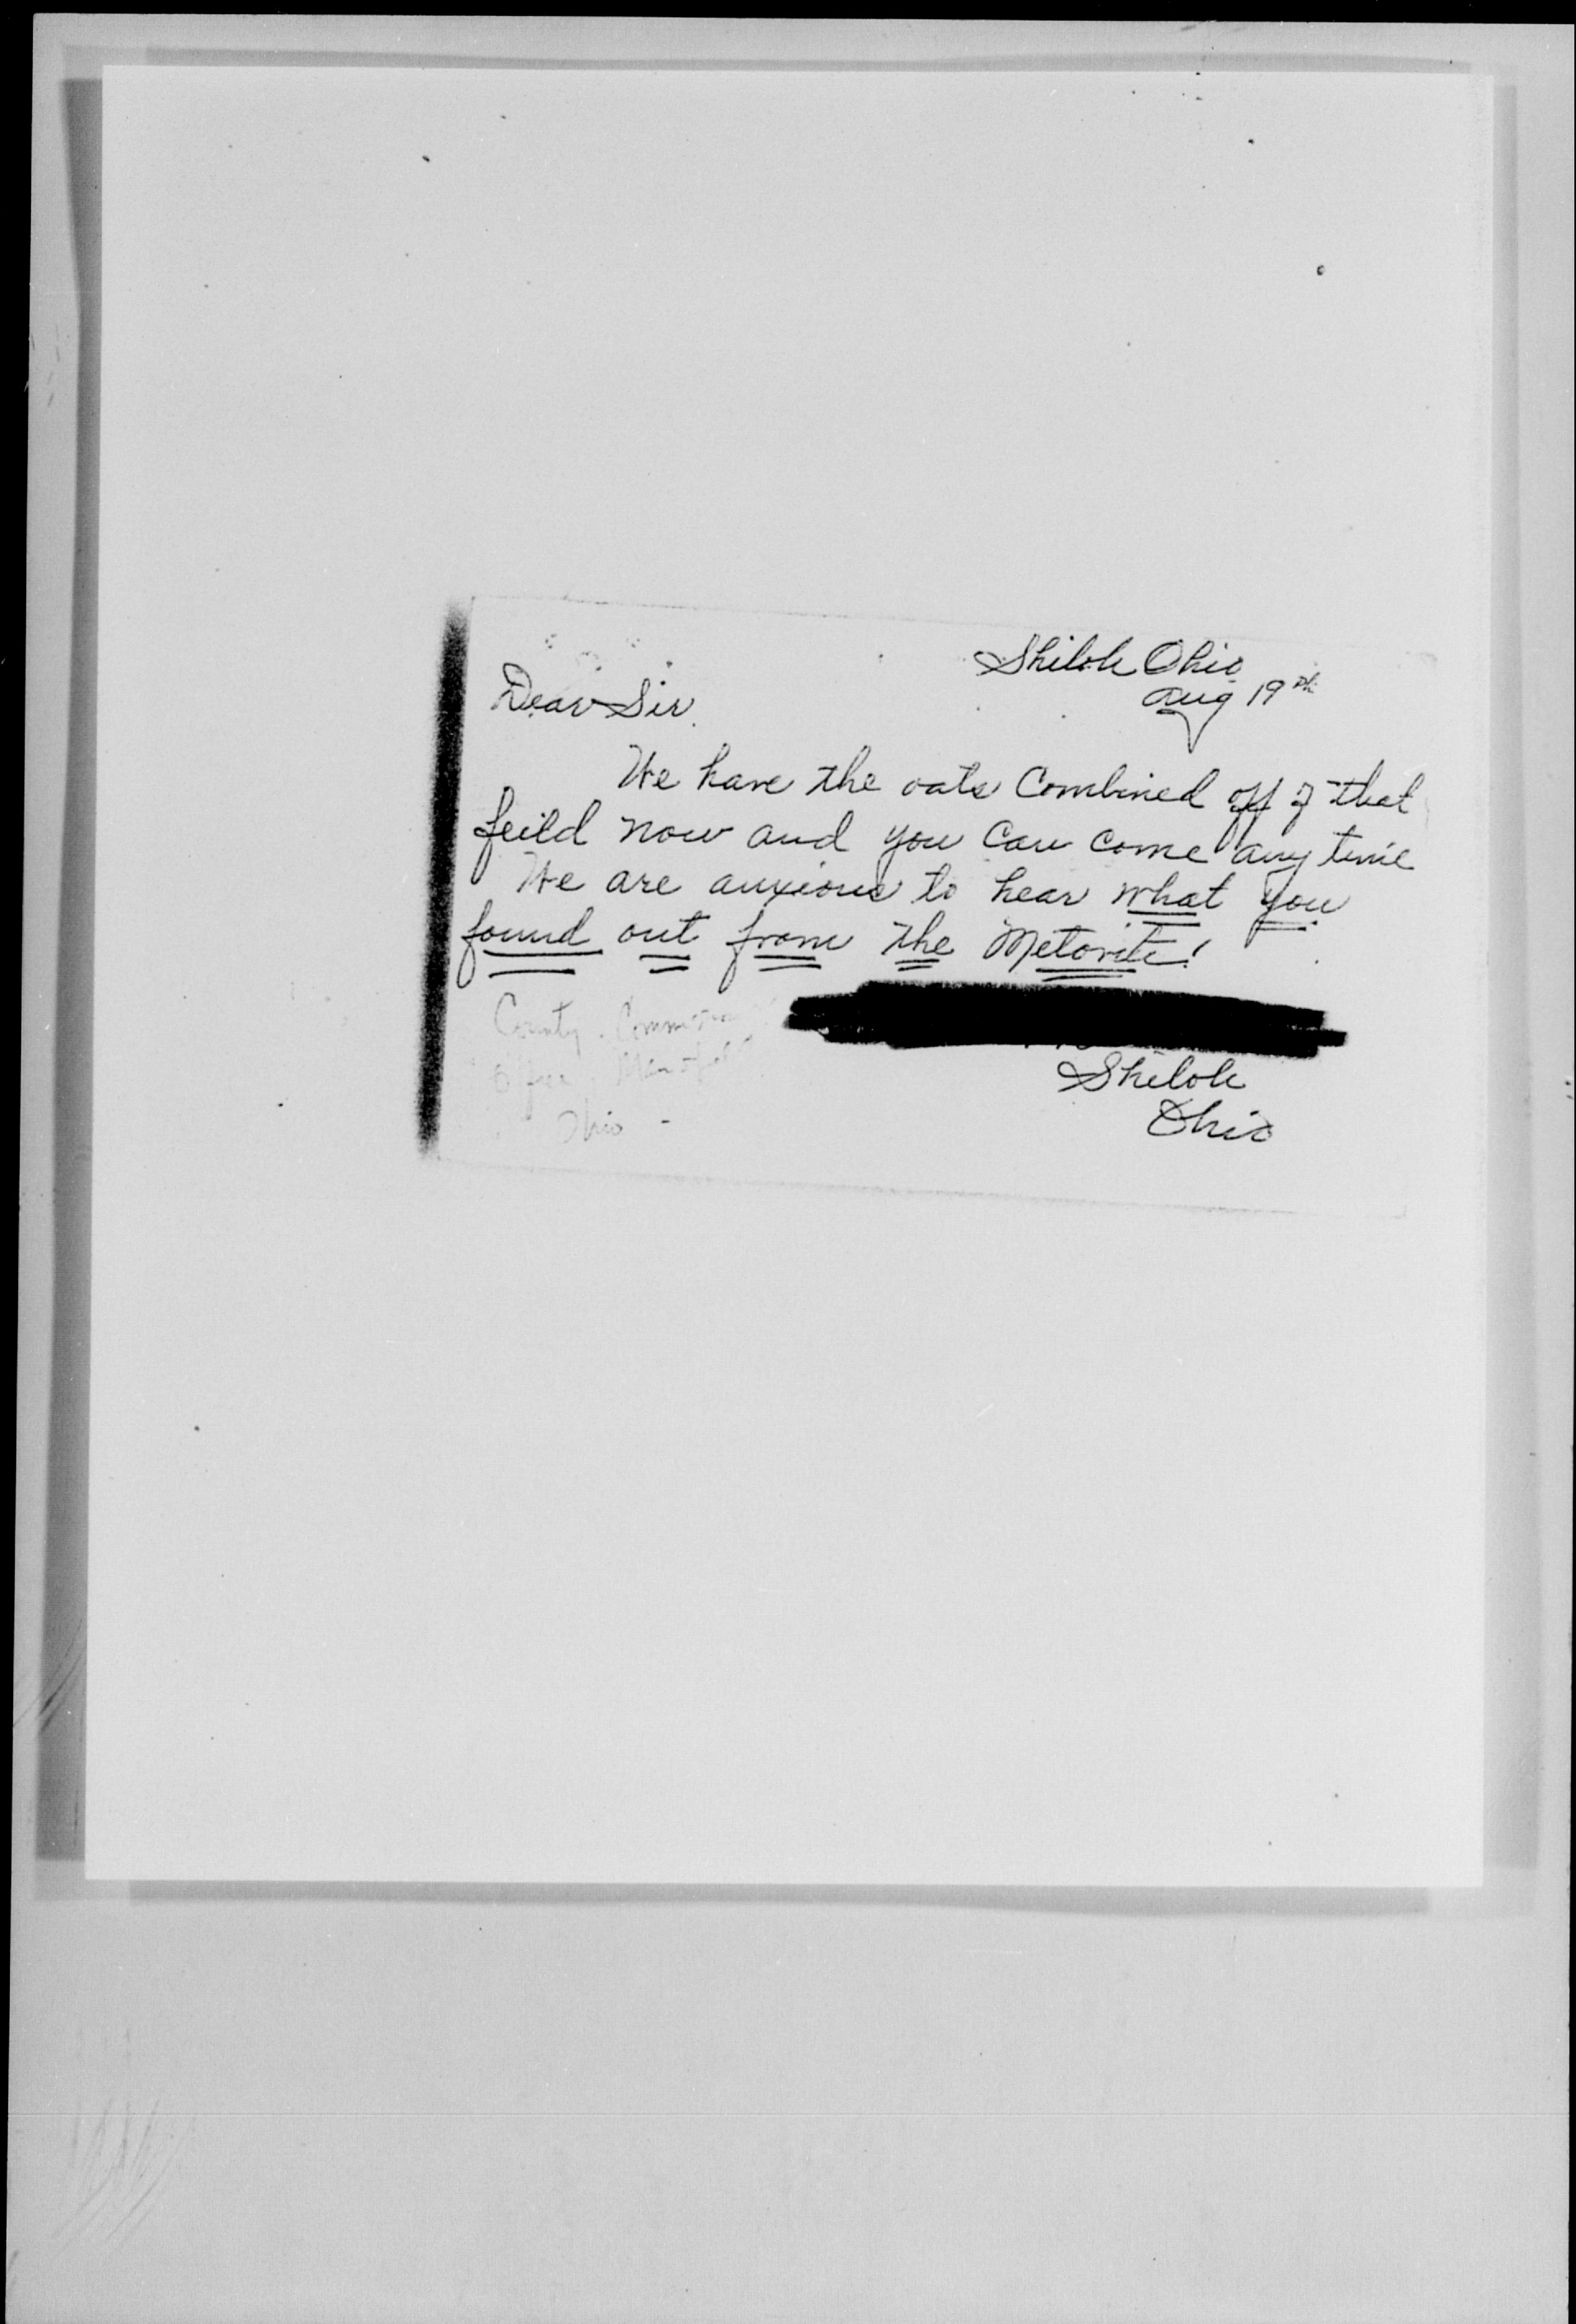 Shiloh Ohio
Aug 19th
Dear Sir
We have the oats Combined off of that
feild now and you can come any time
We are anxious to hear what you
found out from the Metorite!
County Commission
Office, Mansfield
Ohio -
Shiloh
Ohio